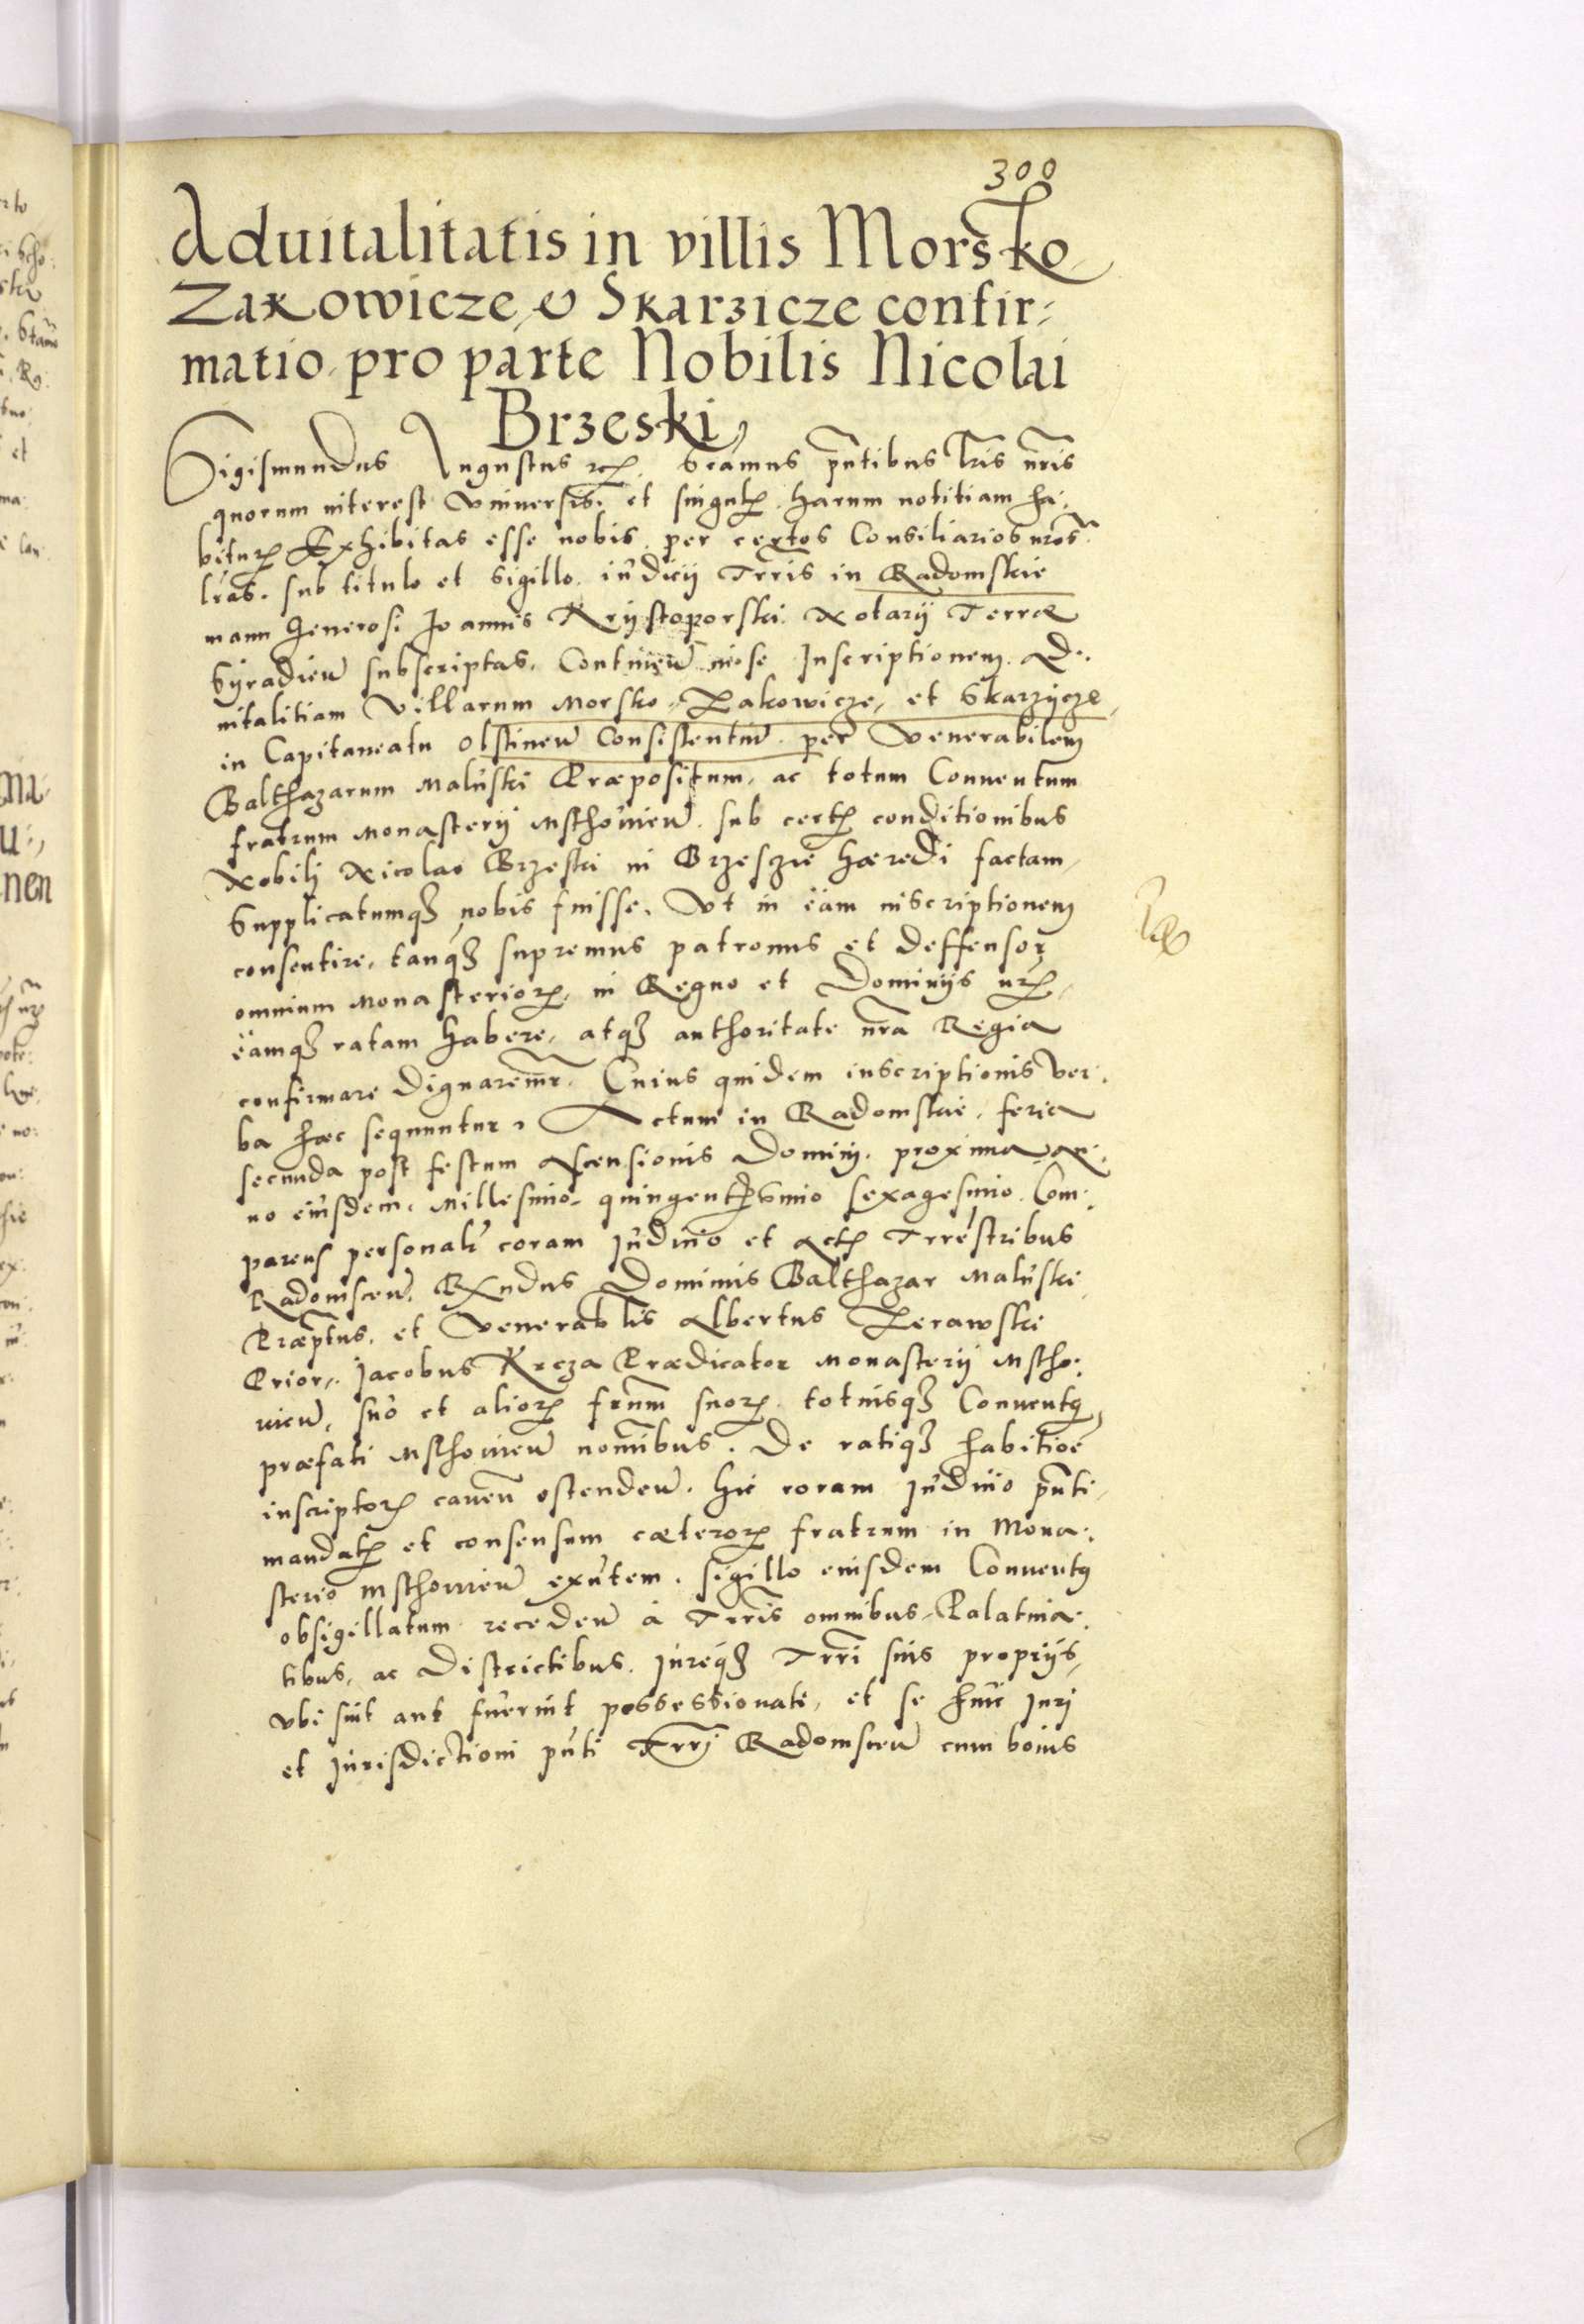 300
Aduitalitatis in villis Morsko
Zakowicze & Skarzicze confir:
matio pro parte Nobilis Nicolai
Brzeski,
Sigismundus Augustus Scamus pntibus lris nris
quorum interest Vniuersis et singulis harum notitiam ha:
bituris Exhibitas esse nobis per certos Consiliarios nros
lras sub titulo et sigillo iudicij Trris in Radomskie
manu Generosi Joannis Krystoporski Notarij Terræ
Syradien subscriptas, Continen in se Inscriptionem Ad:
uitalitiam Villarum Morsko, Zakowicze, et Skarzycze,
in Capitaneatu Olstinen Consistentium per Venerabilem
Balthazarum Maluski Præpositum, ac totum Conuentum
fratrum Monasterij Mschouien sub certis conditionibus
Nobili Nicolao Brzeski in Brzeszie hæredi factam,
Supplicatumq3 nobis fuisse, Vt in eam inscriptionem
consentire, tanq3 supremus patronus et deffensor
omnium Monasteriorum, in Regno et Dominijs nris,
eamq3 ratam habere, atq3 authoritate nra Regia
confirmare dignaremur. Cuius quidem inscriptionis ver:
ba hæc sequuntur, Actum in Radomskie, feria
secunda post festum Ascensionis Domini proxima, an:
no eiusdem, Millesimo quingentesimo sexagesimo. Com:
parens personaliter coram Iudicio et Actis Trrestribus
Radomscen, Rndus Dominus Balthazar Maluski
Præptus, et Venerablis Albertus Zerawski
Prior, Jacobus Krcza Prædicator Monasterij Mscho:
uien, suo et aliorum frum suorum totiusq3 Conuentus
præfati Mschouien nominibus. De ratiq3 habitioe
inscriptorum cauen ostenden. hic coram Iudicio pnti
mandatis et consensum cæterorum fratrum in Mona:
sterio Mschouien exntem, sigillo eiusdem Conuentus
obsigillatum receden à Trris omnibus, Palatina:
tibus, ac Districtibus, Jureq3 Trri suis proprijs,
vbi sint aut fuerint possessionati, et se huic Iuri
et Iurisdictioni pnti Trri Radomscen cum bonis